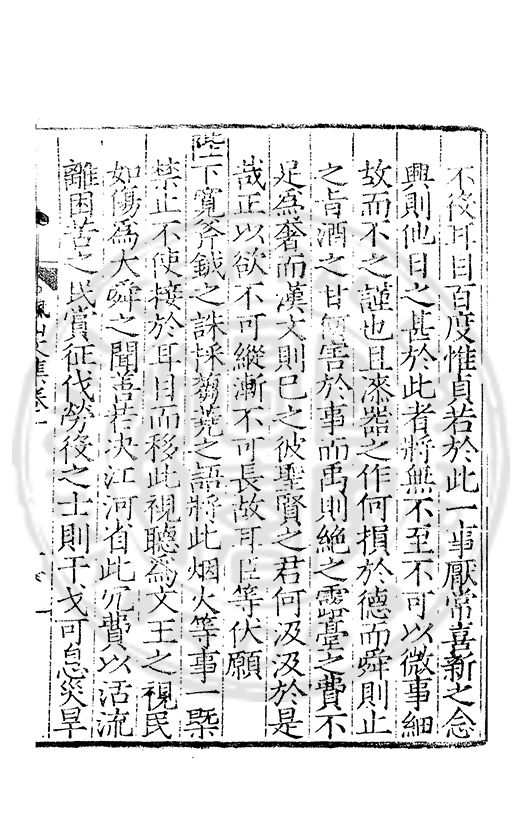 不役耳目百度惟貞若於此一事厭常喜新之念
興則他日之甚於此者將無不至不可以微事細
故而不之謹也且漆器之作何損於德而舜則止
之旨酒之甘何害於事而禹則絶之露臺之費不
足爲奢而漢文則已之彼聖賢之君何汲汲於是
哉正以欲不可縱漸不可長故耳臣等伏願
陛下寬斧鉞之誅採芻蕘之語將此烟火等事一槩
禁止不使接於耳目而移此視聽爲文王之視民
如傷爲大舜之聞善若決江河省此冗費以活流
離困苦之民賞征伐勞役之士則干戈可息災旱
山文集卷一